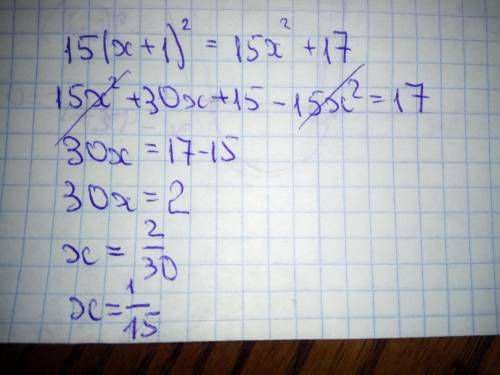 15(x+1)² = 15x² +17
15x² +30x+15 - 15x² = 17
30x = 17-15
30x = 2
x = 2/30
x = 1/15